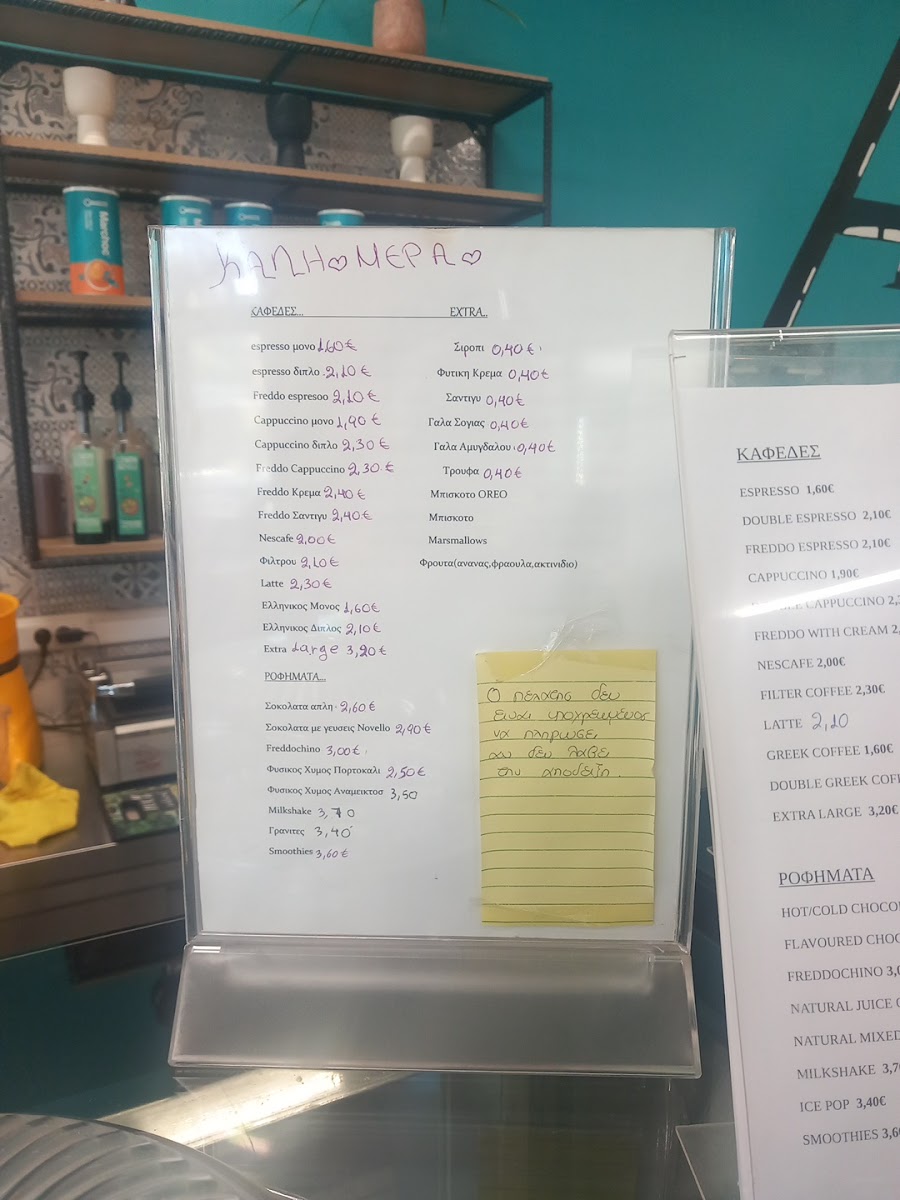 ΚΑΛΗ♡ΜΕΡΑ♡
ΚΑΦΕΔΕΣ...
espresso μονο 1,60€
espresso διπλο 2,10€
Freddo espresoo 2,10€
Cappuccino μονο 1,90€
Cappuccino διπλο 2,30€
Freddo Cappuccino 2,30€
Freddo Κρεμα 2,40€
Freddo Σαντιγυ 2,40€
Nescafe 2,00€
Φιλτρου 2,10€
Latte 2,30€
Ελληνικος Μονος 1,60€
Ελληνικος Διπλος 2,10€
Extra Large 3,20€
ΡΟΦΗΜΑΤΑ...
Σοκολατα απλη 2,60€
Σοκολατα με γευσεις Novello 2,90€
Freddochino 3,00€
Φυσικος Χυμος Πορτοκαλι 2,50€
Φυσικος Χυμος Αναμεικτοσ 3,50
Milkshake 3,70
Γρανιτες 3,40
Smoothies 3,60€
EXTRA..
Σιροπι 0,40€
Φυτικη Κρεμα 0,40€
Σαντιγυ 0,40€
Γαλα Σογιας 0,40€
Γαλα Αμυγδαλου 0,40€
Τρουφα 0,40€
Μπισκοτο OREO
Μπισκοτο
Marsmallows
Φρουτα(ανανας,φραουλα,ακτινιδιο)
Ο πελατης δεν
ειναι υποχρεωμενος
να πληρωσει
αν δεν λαβει
την αποδειξη.
ΚΑΦΕΔΕΣ
ESPRESSO 1,60€
DOUBLE ESPRESSO 2,10€
FREDDO ESPRESSO 2,10€
CAPPUCCINO 1,90€
CAPPUCCINO
FREDDO WITH CREAM
NESCAFE 2,00€
FILTER COFFEE 2,30€
LATTE 2,10
GREEK COFFEE 1,60€
DOUBLE GREEK
EXTRA LARGE 3,20€
ΡΟΦΗΜΑΤΑ
HOT/COLD
FLAVOURED
FREDDOCHINO
NATURAL JUICE
NATURAL MIXED
MILKSHAKE
ICE POP 3,40€
SMOOTHIES
Marchoc